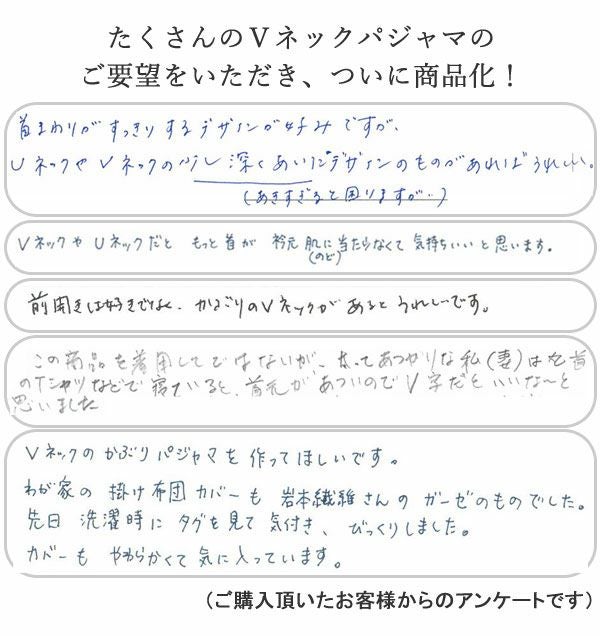 たくさんのＶネックパジャマの
ご要望をいただき、ついに商品化！
首まわりがすっきりするデザインが好みですが、
Uネックや Vネックの少し深くあいたデザインのものがあればうれしい。
(あきすぎると困りますが‥)
Vネックや Uネックだと もっと首が 衿元 肌に当たらなくて 気持ちいいと思います。
(のど)
前開きは好きでなく、かぶりのVネックがあるとうれしいです。
この商品を着用してではないが、太ってあつがりな私(妻)は丸首
のTシャツなどで寝ていると、首元があついのでV字だといいな〜と
思いました
Vネックの かぶり パジャマを 作ってほしいです。
わが家の 掛け布団カバーも 岩本繊維さんの ガーゼのものでした。
先日 洗濯時に タグを見て 気付き、 びっくりしました。
カバーも やわらかくて 気に入っています。
（ご購入頂いたお客様からのアンケートです）